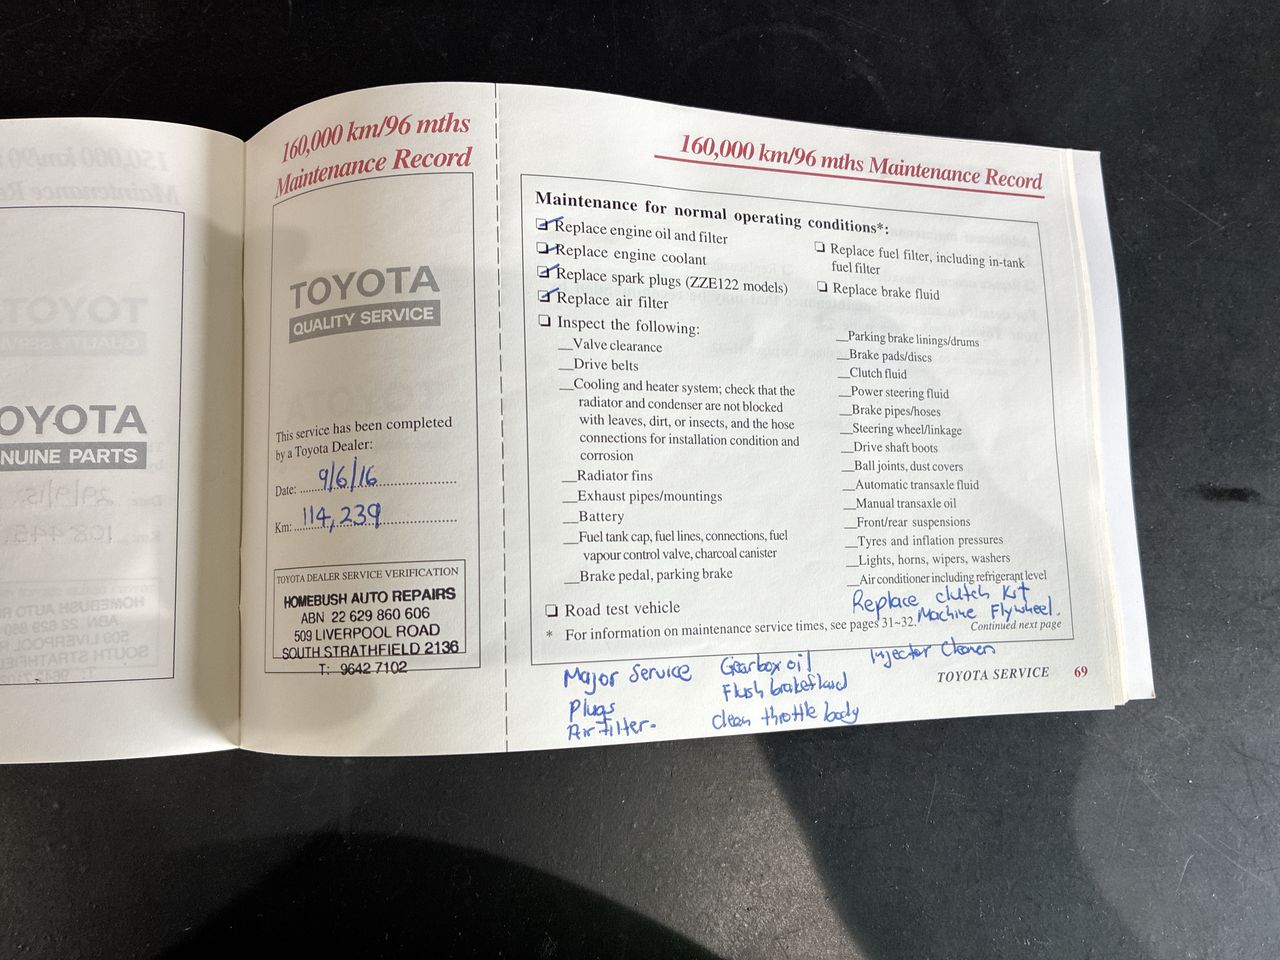 160,000 km/96 mths
Maintenance Record
TOYOTA
QUALITY SERVICE
This service has been completed
by a Toyota Dealer:
Date: 9/6/16
Km: 114,239
TOYOTA DEALER SERVICE VERIFICATION
HOMEBUSH AUTO REPAIRS
ABN 22 629 860 606
509 LIVERPOOL ROAD
SOUTH STRATHFIELD 2136
T: 9642 7102
OYOTA
NUINE PARTS
160,000 km/96 mths Maintenance Record
Maintenance for normal operating conditions*:
Replace engine oil and filter
Replace engine coolant
Replace spark plugs (ZZE122 models)
Replace air filter
Replace fuel filter, including in-tank
fuel filter
Replace brake fluid
Inspect the following:
__Valve clearance
__Drive belts
__Cooling and heater system; check that the
radiator and condenser are not blocked
with leaves, dirt, or insects, and the hose
connections for installation condition and
corrosion
__Radiator fins
__Exhaust pipes/mountings
__Battery
__Fuel tank cap, fuel lines, connections, fuel
vapour control valve, charcoal canister
__Brake pedal, parking brake
__Parking brake linings/drums
__Brake pads/discs
__Clutch fluid
__Power steering fluid
__Brake pipes/hoses
__Steering wheel/linkage
__Drive shaft boots
__Ball joints, dust covers
__Automatic transaxle fluid
__Manual transaxle oil
__Front/rear suspensions
__Tyres and inflation pressures
__Lights, horns, wipers, washers
__Air conditioner including refrigerant level
Replace clutch Kit
Machine Flywheel.
Road test vehicle
* For information on maintenance service times, see pages 31~32.
Continued next page
Major Service
Plugs
Air Filter-
Gearbox oil
Flush brake
clean throttle body
Injector Cleaners
TOYOTA SERVICE 69